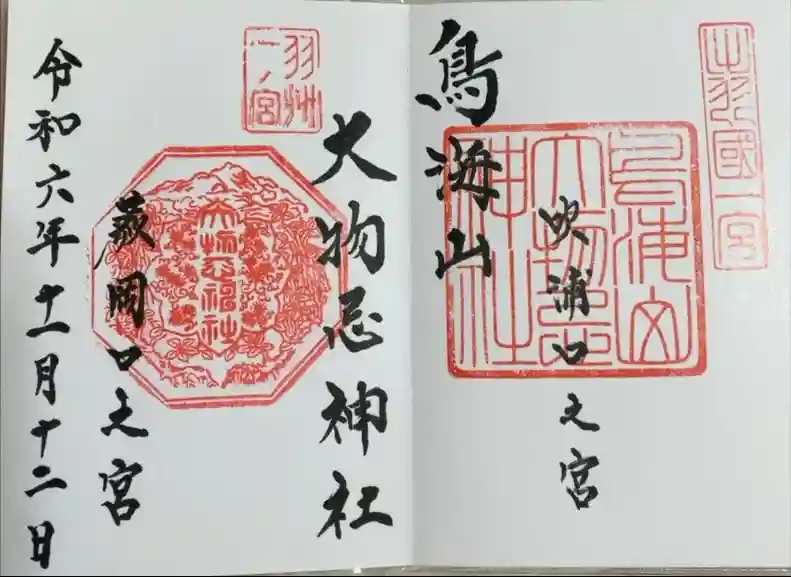 出羽國一宮
鳥海山
大物忌
神社
吹浦口之宮
鳥海山
羽州
一ノ宮
大物忌神社
大物忌神社
蕨岡口之宮
令和六年十一月十二日